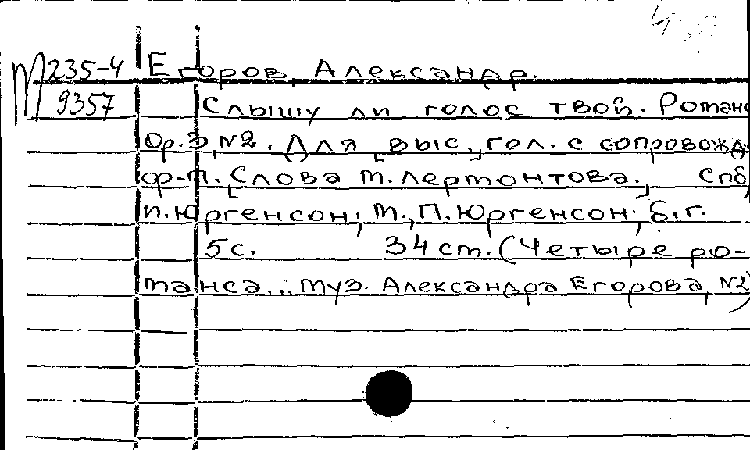 М 235-4 Егоров, Александр.
9357 Слышу ли голос твой. Романс
Ор.3, №2. Для [выс.] гол. с сопровожд.
ф-п. [Слова М. Лермонтова.] Спб,
П. Юргенсон; М., П. Юргенсон, б.г.
5с. 34 см. (Четыре ро-
манса... муз. Александра Егорова, №2)